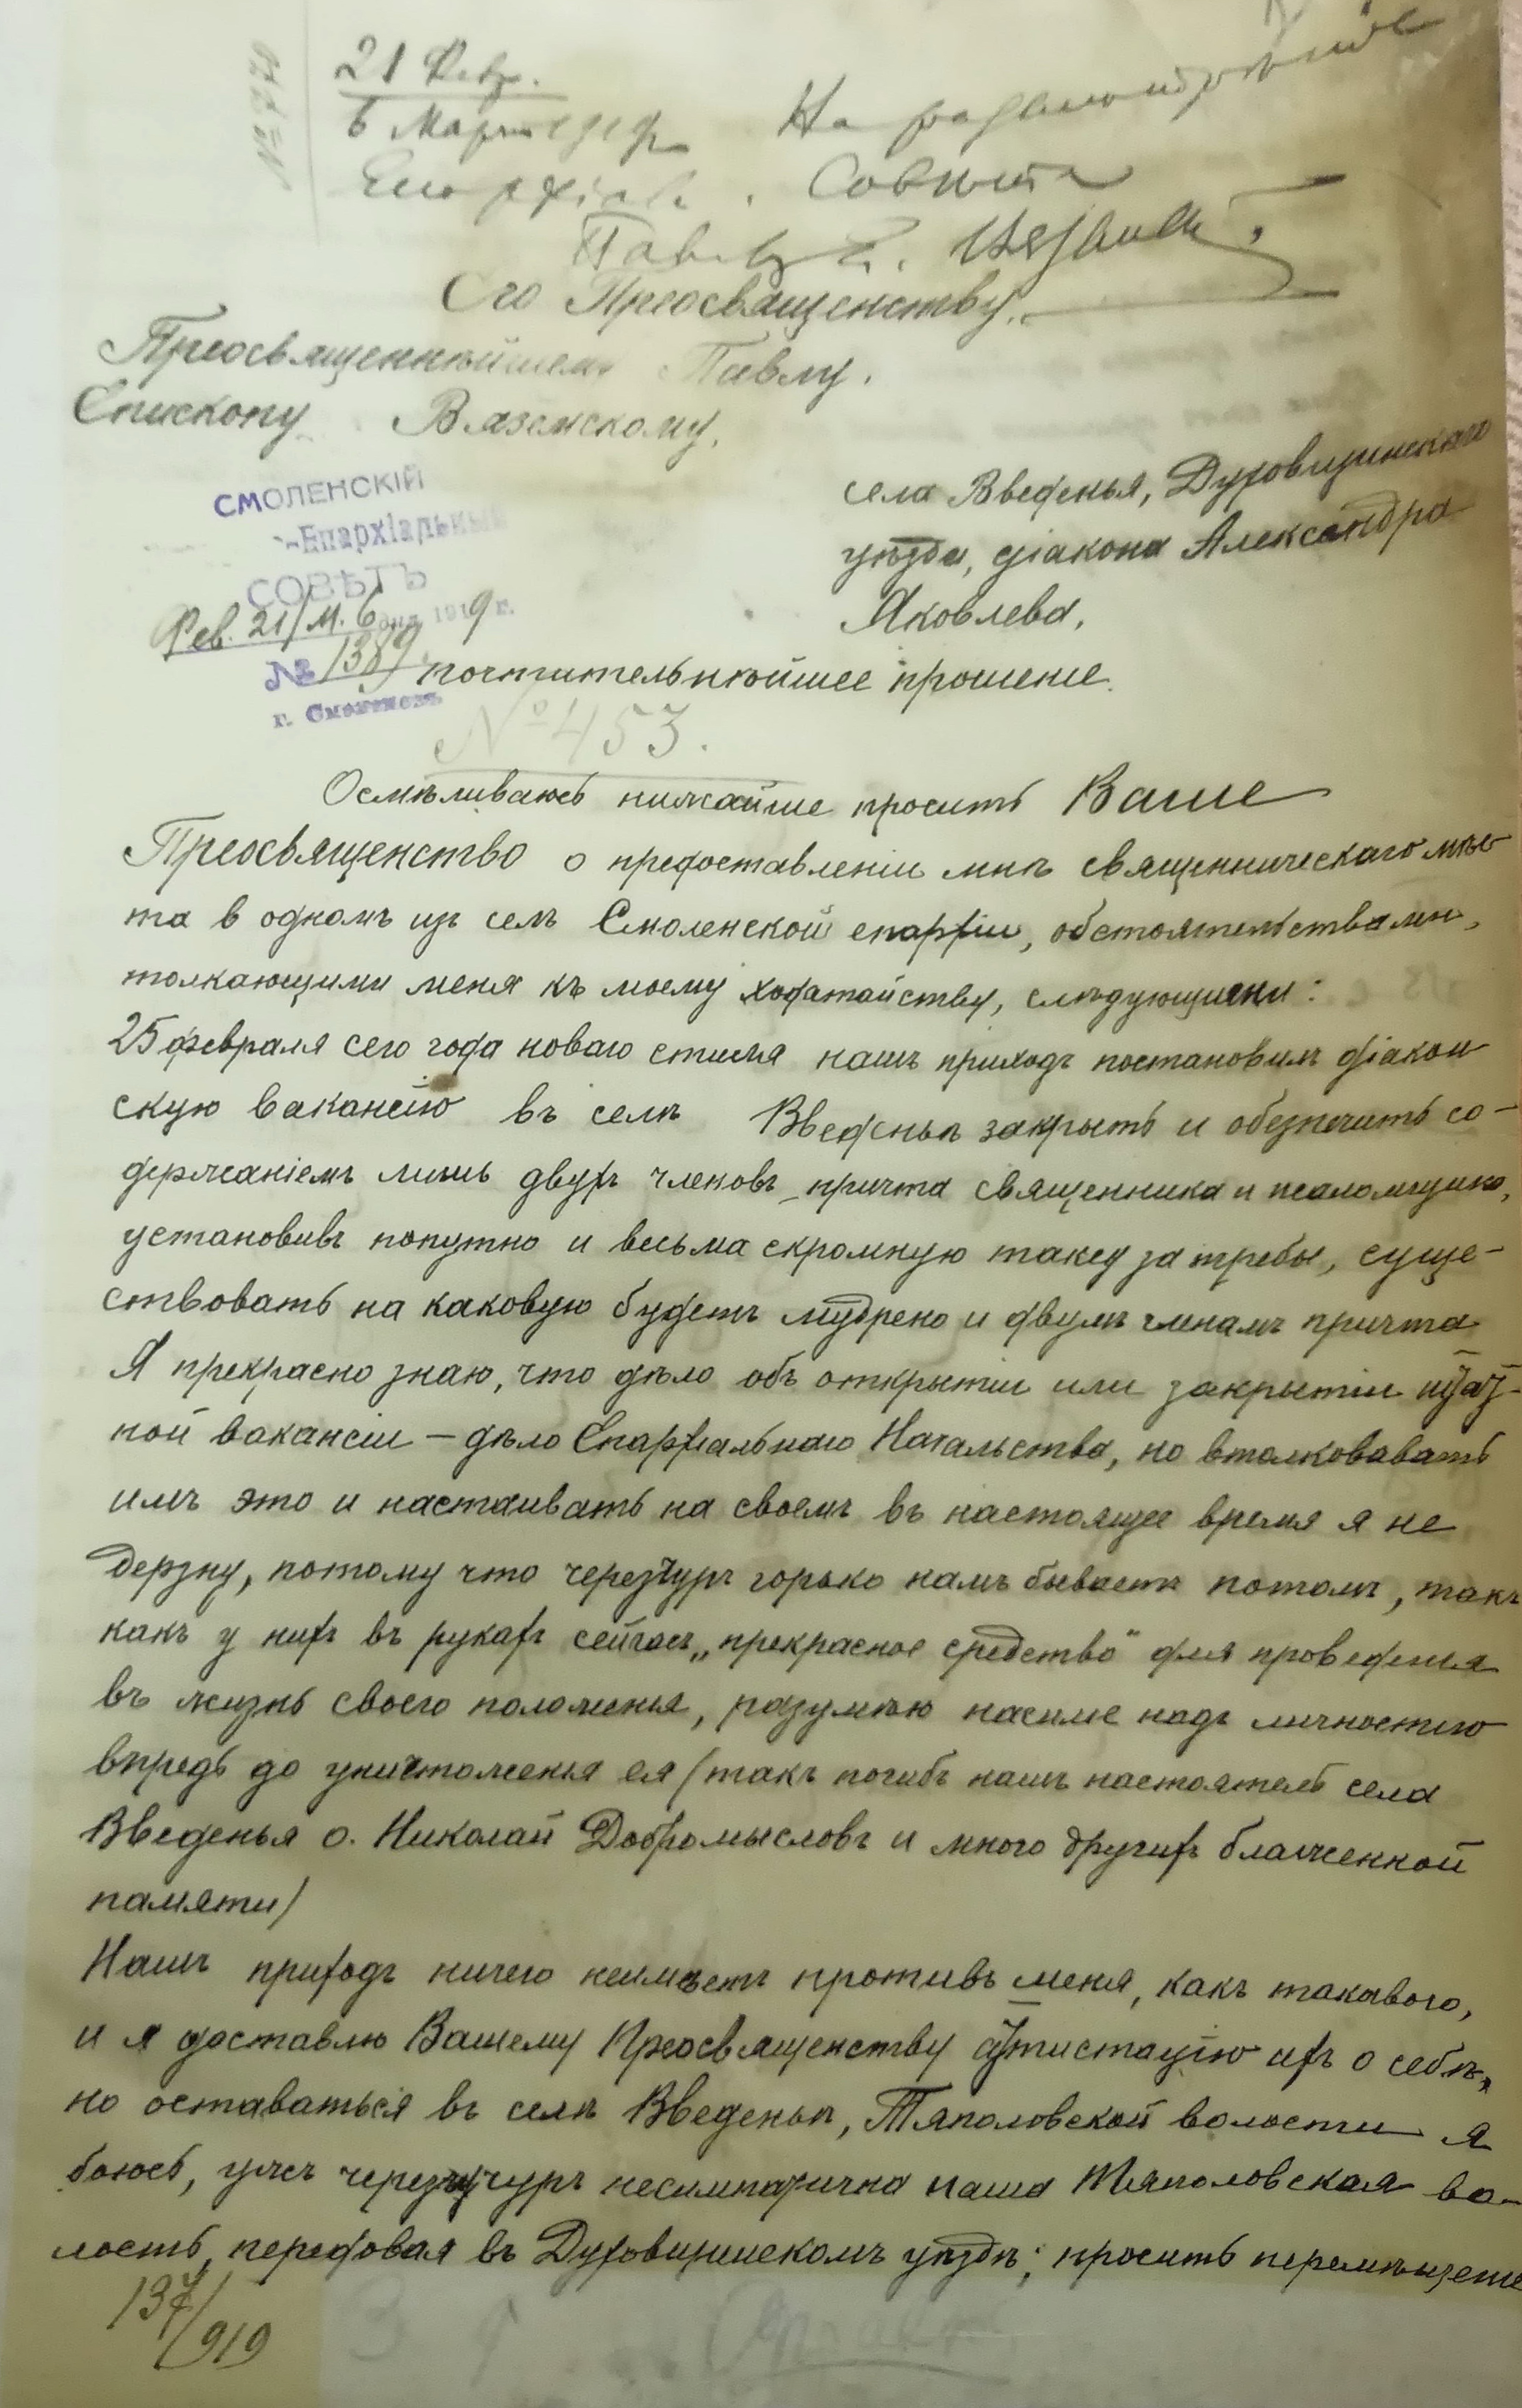 № 770
21 Февр.
6 Марта 1919 г. На разсмотрѣніе
Епархіал. Совѣта
Павелъ Е. Вяземскій
Его Преосвященству,
Преосвященнѣйшему Павлу,
Епископу Вяземскому,
СМОЛЕНСКІЙ
Епархіальный
СОВѢТЪ
Фев. 21/М. 6 дня 1919 г.
№ 1389
г. Смоленскъ
села Введенья, Духовщинскаго
уѣзда, діакона Александра
Яковлева,
почтительнѣйшее прошеніе.
№ 453.
Осмѣливаюсь нижайше просить Ваше
Преосвященство о предоставленіи мнѣ священническаго мѣс-
та в одномъ изъ селъ Смоленской епархіи, обстоятельствами,
толкающими меня къ моему ходатайству, слѣдующими:
25 февраля сего года новаго стиля нашъ приходъ постановилъ діакон
скую вакансію въ селѣ Введеньѣ закрыть и обезпечить со-
держаніемъ лишь двухъ членовъ причта священника и псаломщика,
установивъ попутно и весьма скромную таксу за требы, суще-
ствовать на каковую будетъ мудрено и двумъ членамъ причта
Я прекрасно знаю, что дѣло объ открытіи или закрытіи штат-
ной вакансіи – дѣло Епархіальнаго Начальства, но втолковавать
имъ это и настаивать на своемъ въ настоящее время я не
дерзну, потому что черезчуръ горько намъ бываетъ потомъ, такъ
какъ у нихъ въ рукахъ сейчасъ „прекрасное средство" для проведенія
въ жизнь своего положенія, разумѣю насиліе надъ личностію
впредь до уничтоженія ея (такъ погибъ нашъ настоятель села
Введенья о. Николай Добромысловъ и много другихъ блаженной
памяти)
Нашъ приходъ ничего неимѣетъ противъ меня, какъ такового,
и я доставлю Вашему Преосвященству аттистацію ихъ о себѣ,
но оставаться въ селѣ Введеньѣ, Тяполовской волости я
боюсь, ужъ черезчуръ несимпатична наша Тяполовская во-
лость, передовая въ Духовщинскомъ уѣздѣ; просить перемѣщенія
137/919